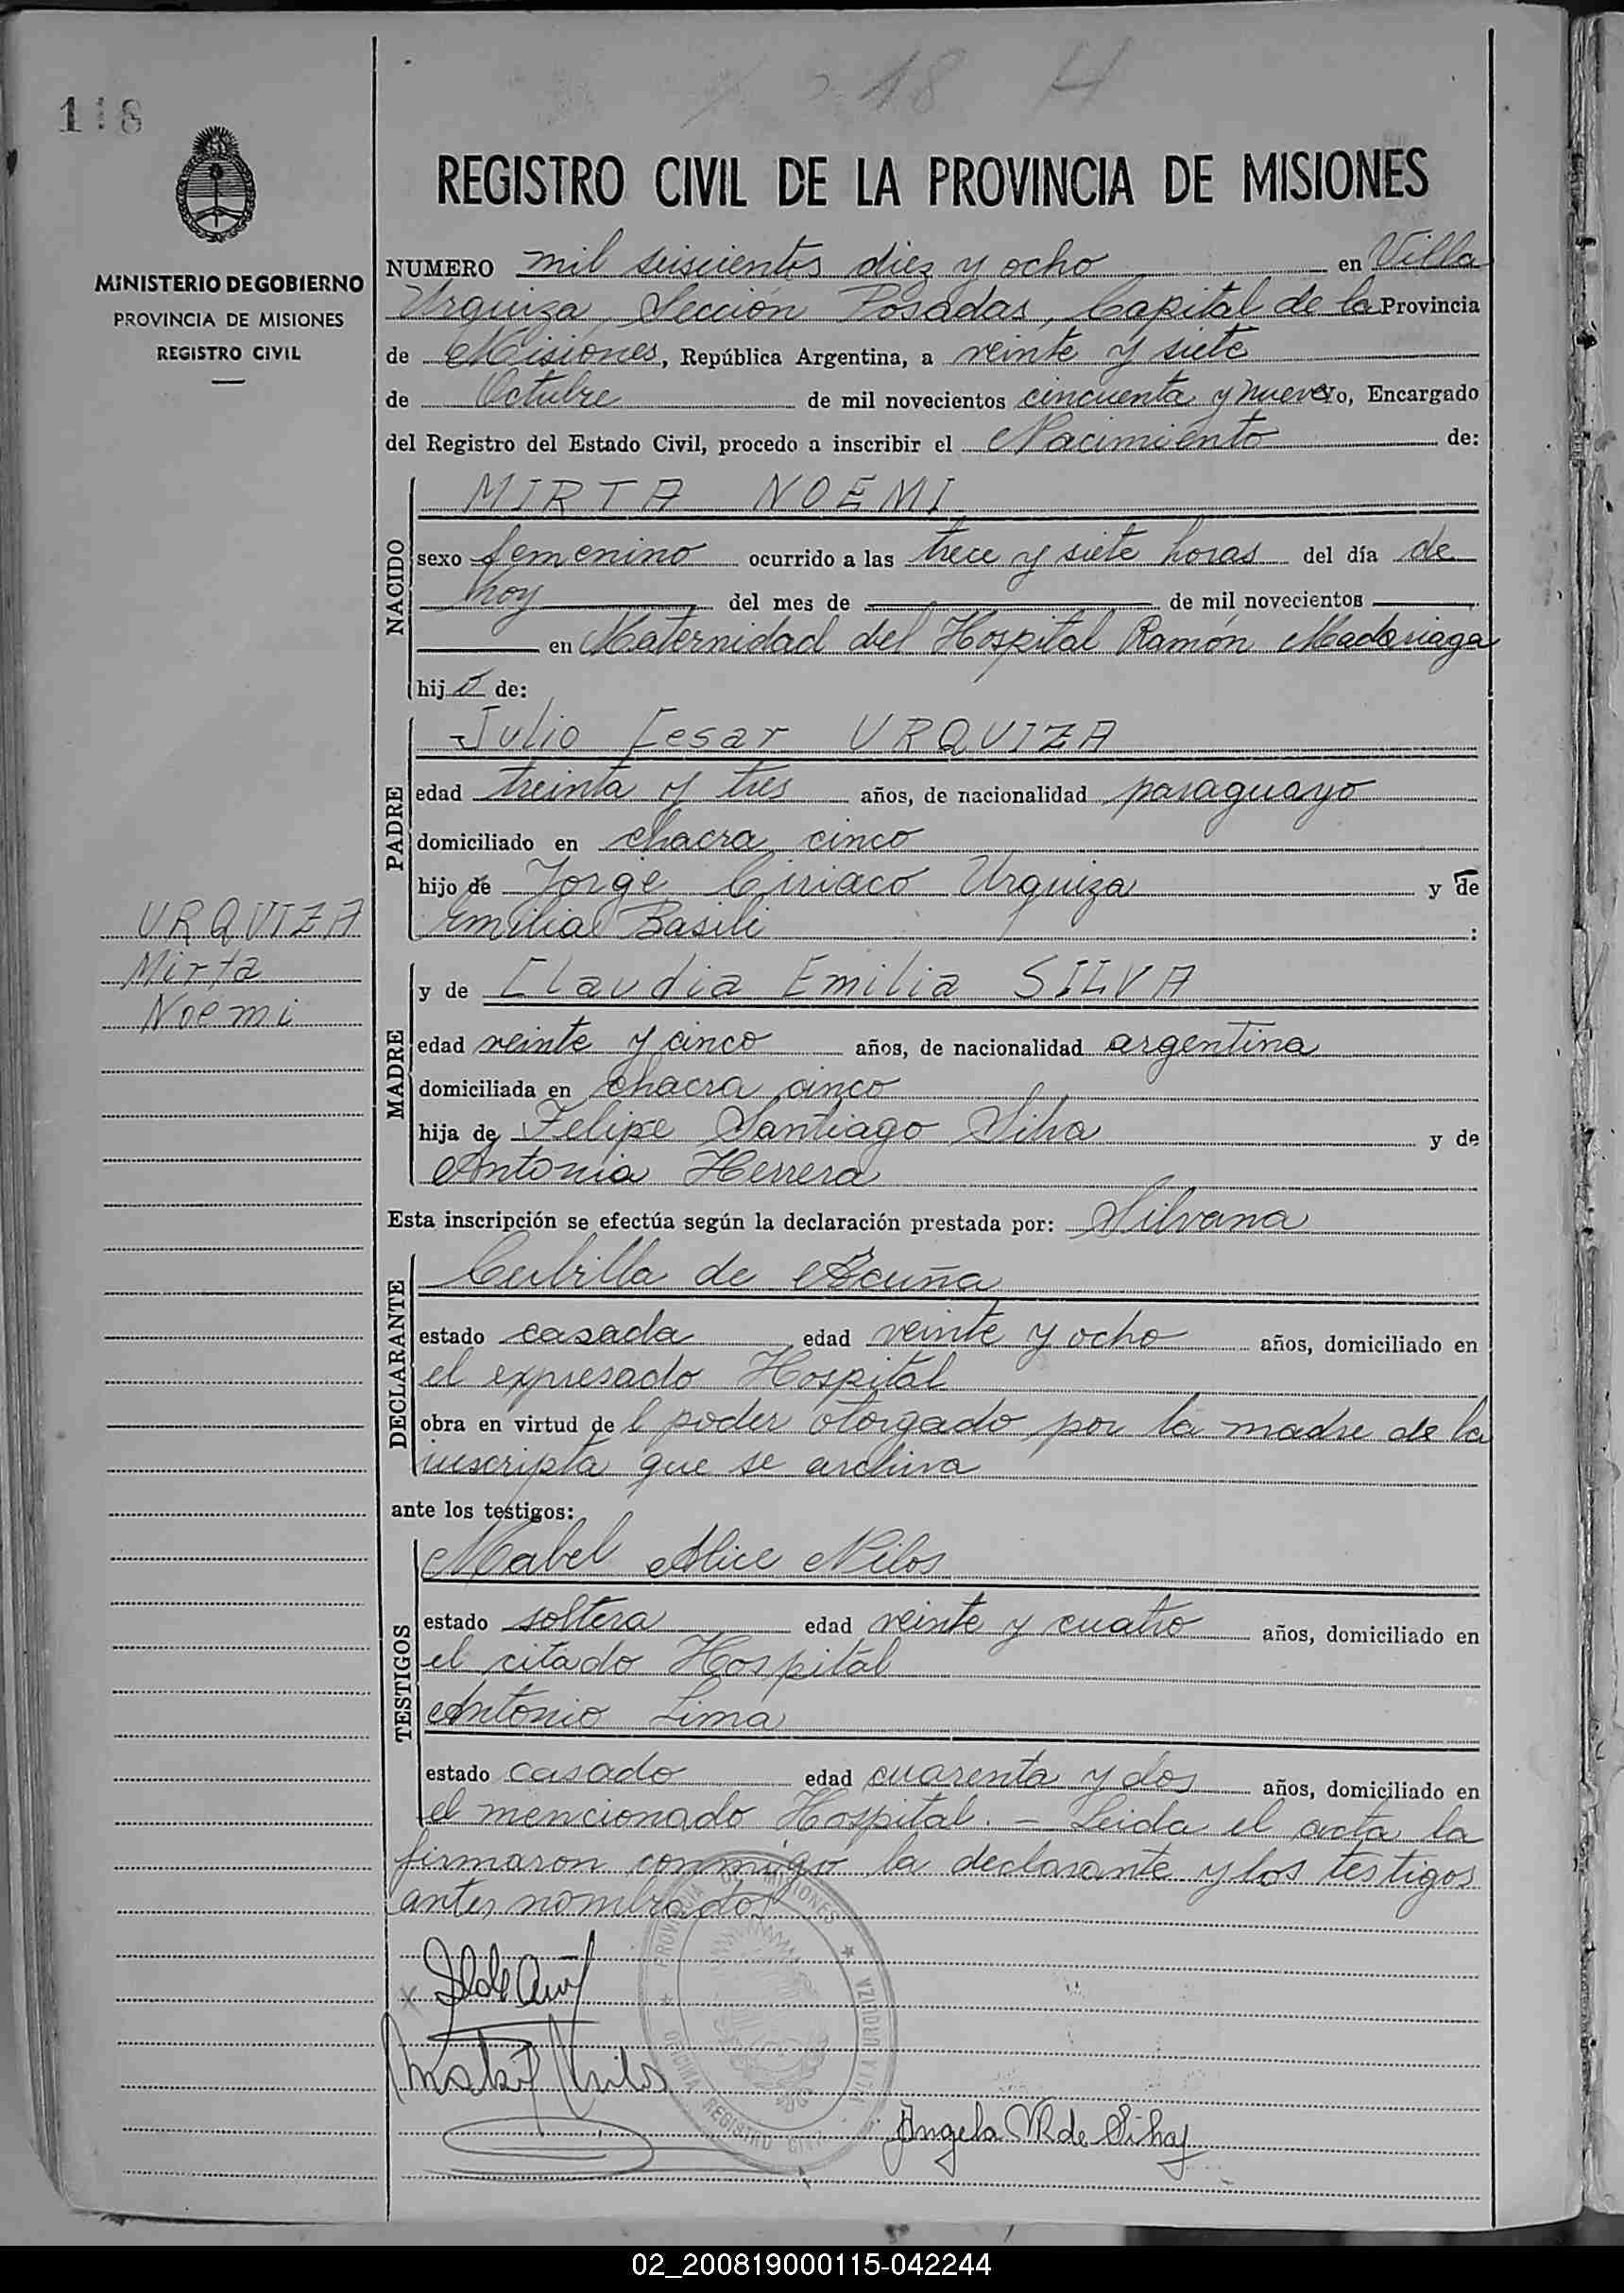 118
18 H
REGISTRO CIVIL DE LA PROVINCIA DE MISIONES
MINISTERIO DE GOBIERNO
PROVINCIA DE MISIONES
REGISTRO CIVIL
NUMERO mil seiscientos diez y ocho en Villa
Urquiza, Sección Posadas, Capital de la Provincia
de Misiones, República Argentina, a veinte y siete
de Octubre de mil novecientos cincuenta y nueve yo, Encargado
del Registro del Estado Civil, procedo a inscribir el Nacimiento de:
NACIDO
MIRTA NOEMI
sexo femenino ocurrido a las trece y siete horas del día de
hoy del mes de de mil novecientos
en Maternidad del Hospital Ramón Madariaga
hij de:
PADRE
Julio Cesar URQUIZA
edad treinta y tres años, de nacionalidad paraguayo
domiciliado en chacra cinco
hijo de Jorge Ciriaco Urquiza y de
Emilia Basili :
URQUIZA
Mirta
Noemi
MADRE
y de Claudia Emilia SILVA
edad veinte y cinco años, de nacionalidad argentina
domiciliada en chacra cinco
hija de Felipe Santiago Silva y de
Antonia Herrera
Esta inscripción se efectúa según la declaración prestada por: Silvana
DECLARANTE
Cubilla de Acuña
estado casada edad veinte y ocho años, domiciliado en
el expresado Hospital
obra en virtud de l poder otorgado por la madre de la
inscripta que se archiva
ante los testigos:
TESTIGOS
Mabel Alice Nilos
estado soltera edad veinte y cuatro años, domiciliado en
el citado Hospital
Antonio Lima
estado casado edad cuarenta y dos años, domiciliado en
el mencionado Hospital. - Leida el acta la
firmaron conmigo la declarante y los testigos
antes nombrados
PROVINCIA DE MISIONES
OFICINA REGISTRO CIVIL
VILLA URQUIZA
Mabel Nilos
Angela de Silva
02_200819000115-042244